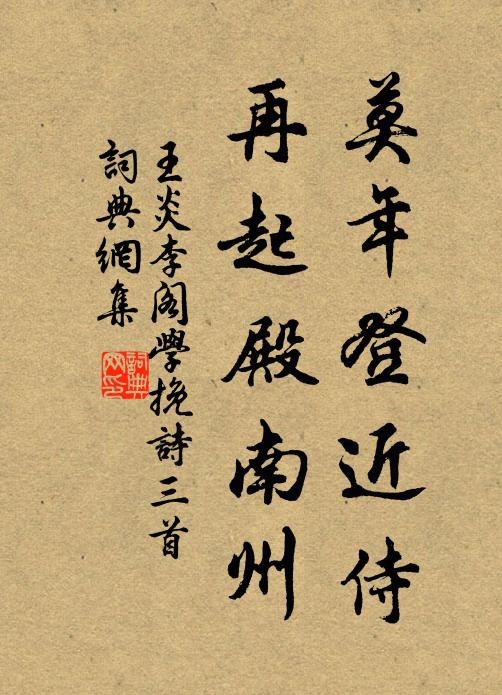 莫年登近侍
再起殿南州
王炎李阁學挽詩三首
詞典網集
詞典网印